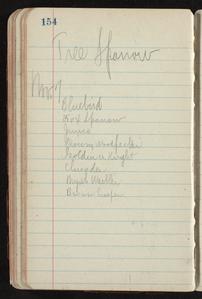 154
Tree Sparrow
Nov 7
Bluebird
Fox Sparrow
Junco
Downy Woodpecker
Golden c. Knight
Chicadee
Myrtle Warbler
Brown Creeper